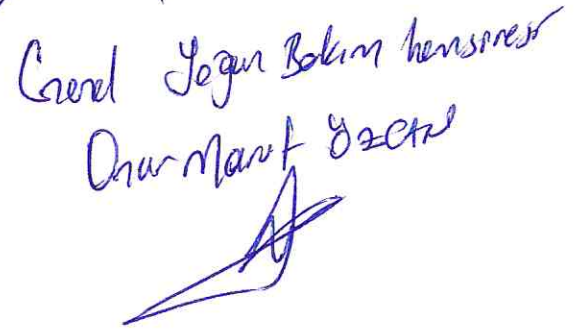 Genel Yoğun Bakım hemşiresi
Onur Maruf ÖZCAN